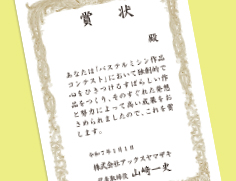 賞状
殿
あなたは「パステルミシン作品
コンテスト」において独創的で
心をひきつけるすばらしい作
品をつくり、そのすぐれた発想
と努力によって高い成果をお
さめられましたので、これを賞
します。
令和7年1月1日
株式会社アックスヤマザキ
代表取締役 山﨑一史